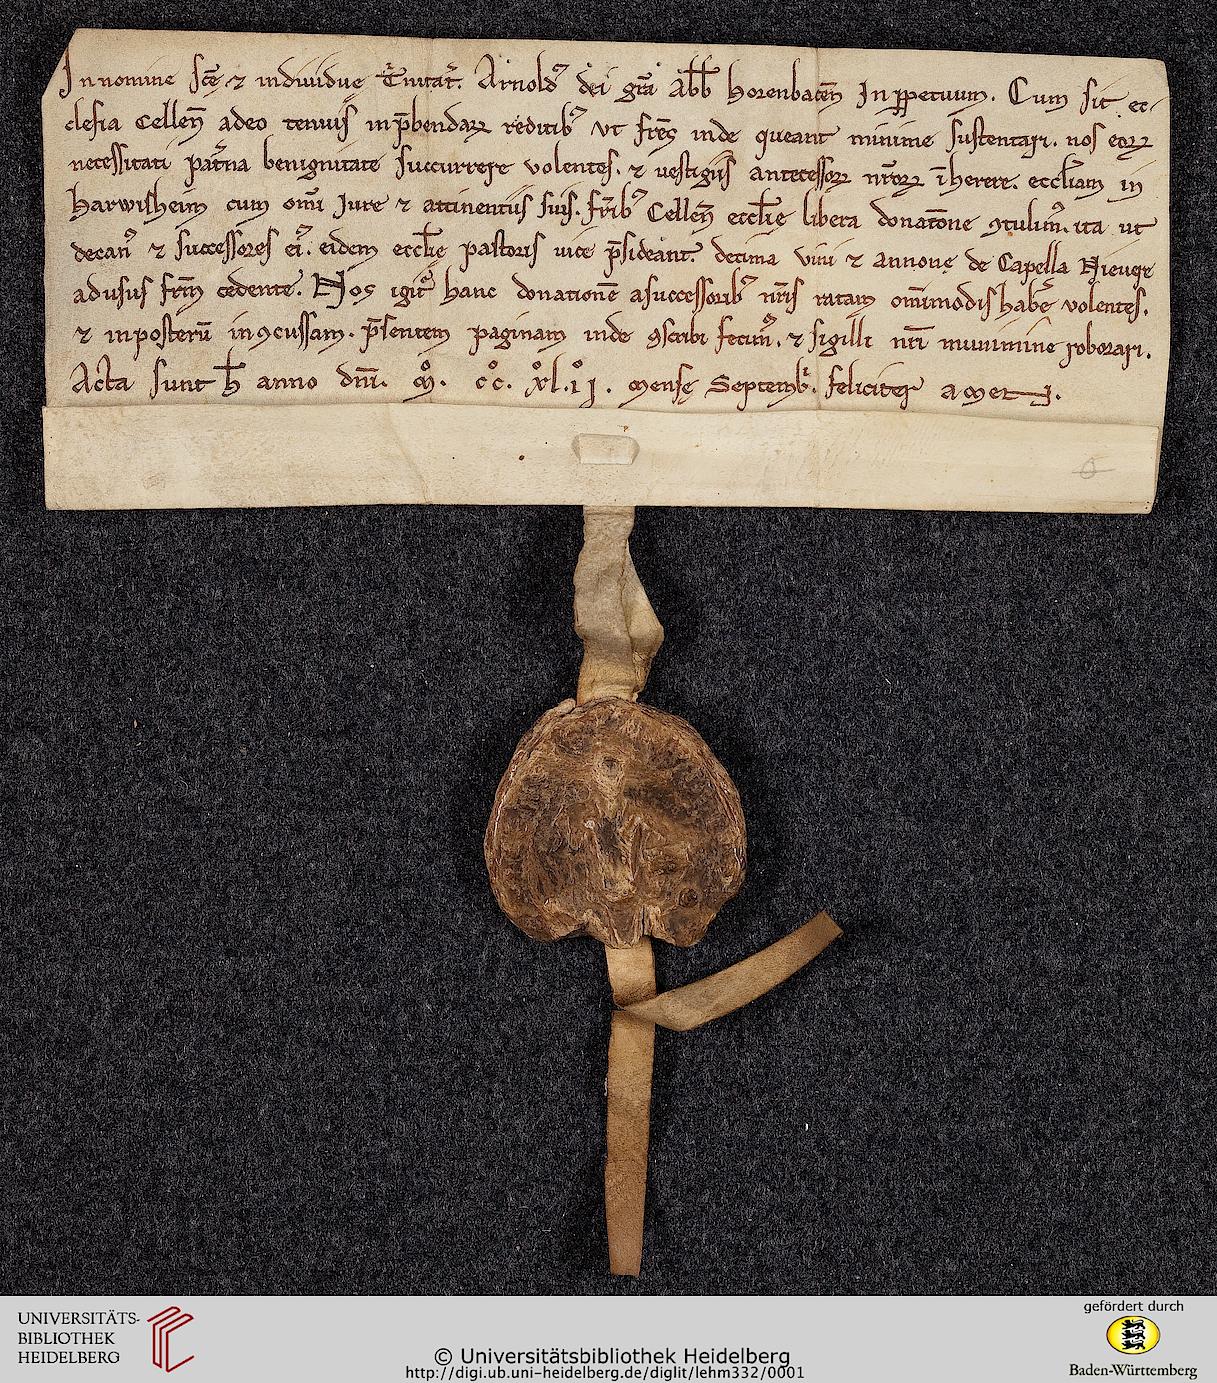 In nomine sc̄ę ⁊ indiuiduę T̄nitat̄. Arnold᷒ dei gr̄a Abb̄ horenbacen̄ In ꝑpetuum. Cum sit ec-
clesia Cellen̄ adeo tenuis in p̄bendaꝝ redditib᷒ vt fr̄es inde queant minime sustentari. nos eoꝝ
necessitati pat̄na benignitate succurrere volentes. ⁊ uestigiis antecessoꝝ nr̄oꝝ īherere. eccl̄iam in
harwisheim cum om̄i Iure ⁊ attinentiis suis. fr̄ib᷒ Cellen̄ eccl̄ię libera donatōne ꝯtulim᷒. ita ut
decan᷒ ⁊ successores ei᷒. eidem eccl̄ię pastoris uice p̄sideant. decima vini ⁊ annonę de Capella
ad usus fr̄m cedente. Nos igit᷒ hanc donationē a successorib᷒ nr̄is ratam om̄imodis habe᷒ volentes.
⁊ in posterū inꝯcussam. p̄sentem paginam inde ꝯscribi fecim᷒. ⁊ sigilli nr̄i munimine roborari.
Acta sunt h̄ anno dn̄i. m̊. c̊c. x̊l.i̊j. mense Septemb᷒. feliciter amen.
UNIVERSITÄTS-
BIBLIOTHEK
HEIDELBERG
© Universitätsbibliothek Heidelberg
http://digi.ub.uni-heidelberg.de/diglit/lehm332/0001
gefördert durch
Baden-Württemberg